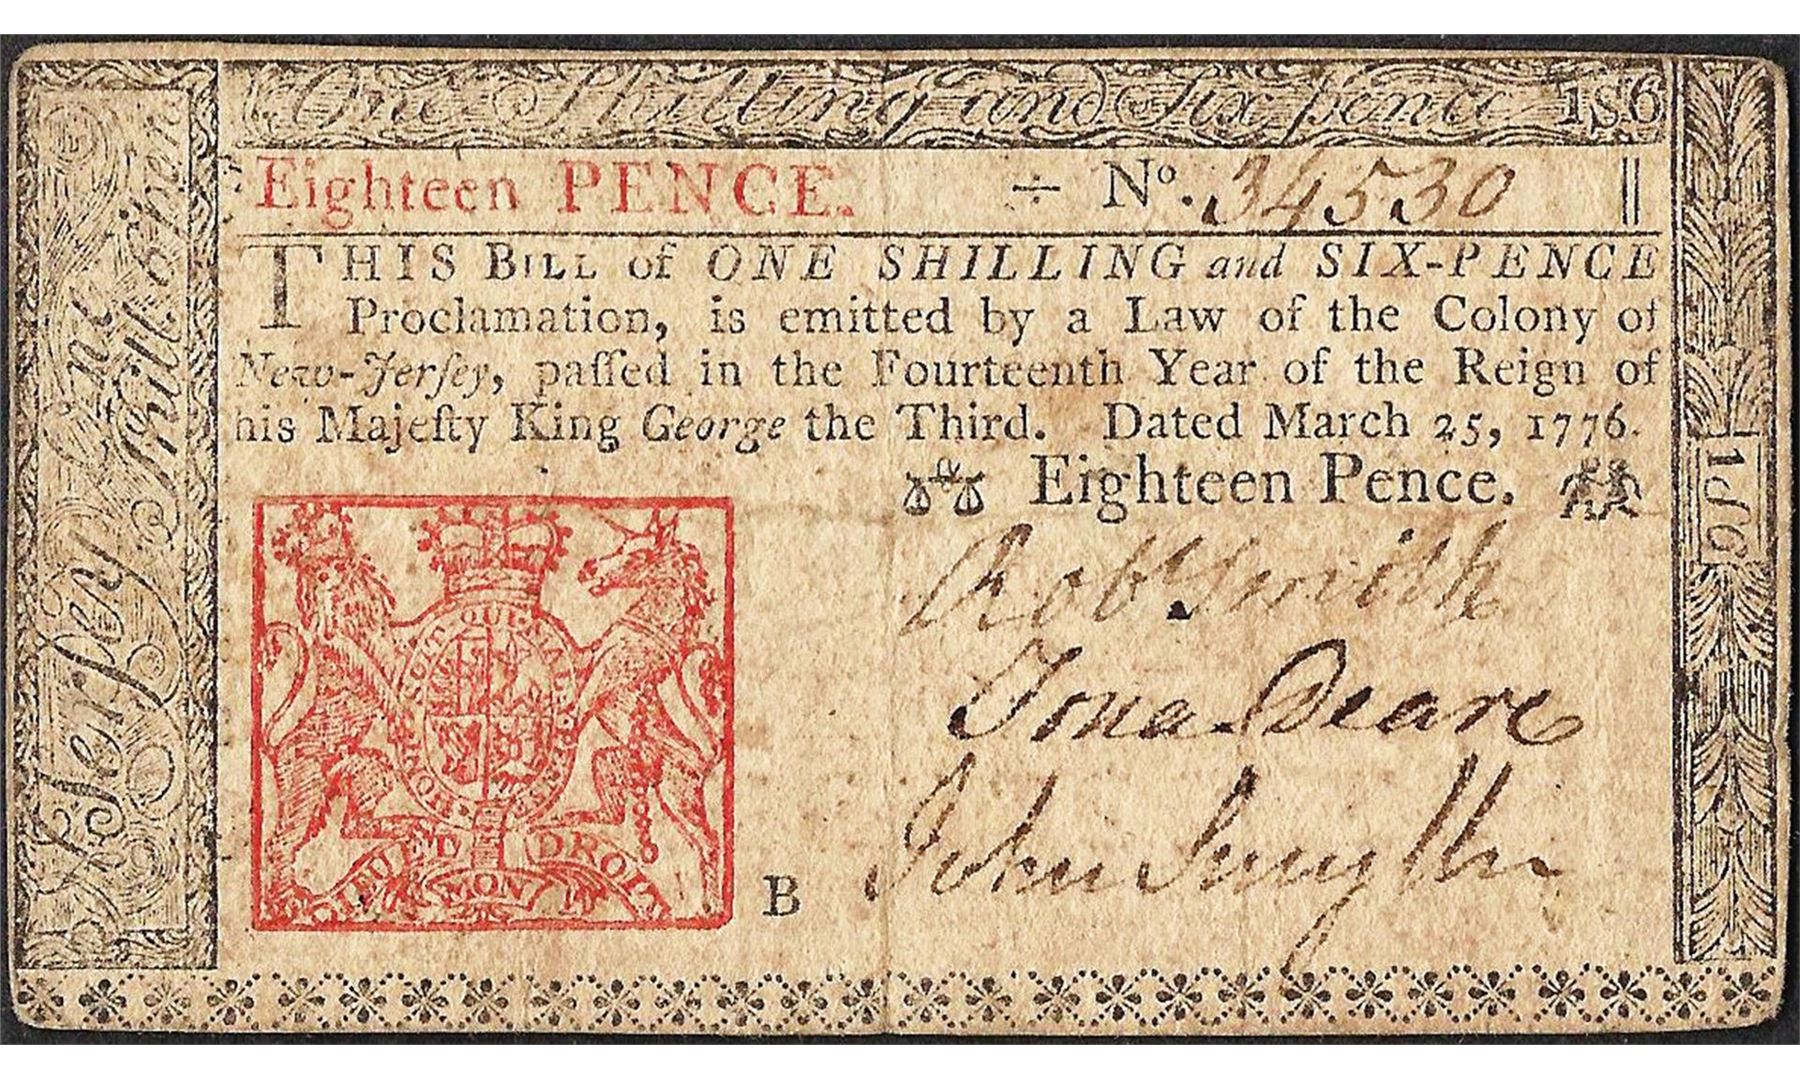 One Shilling and Six pence 1S6
Eighteen PENCE. ÷ No. 34530 ||
THIS BILL of ONE SHILLING and SIX-PENCE
Proclamation, is emitted by a Law of the Colony of
New-Jerſey, paſſed in the Fourteenth Year of the Reign of
his Majeſty King George the Third. Dated March 25, 1776.
Eighteen Pence.
Robt Smith
Jona Deare
John Smyth
B
Jerſey One Shill. 6 pen
1ſ6
HONI SOIT QUI MAL Y PENSE
DIEU ET MON DROIT